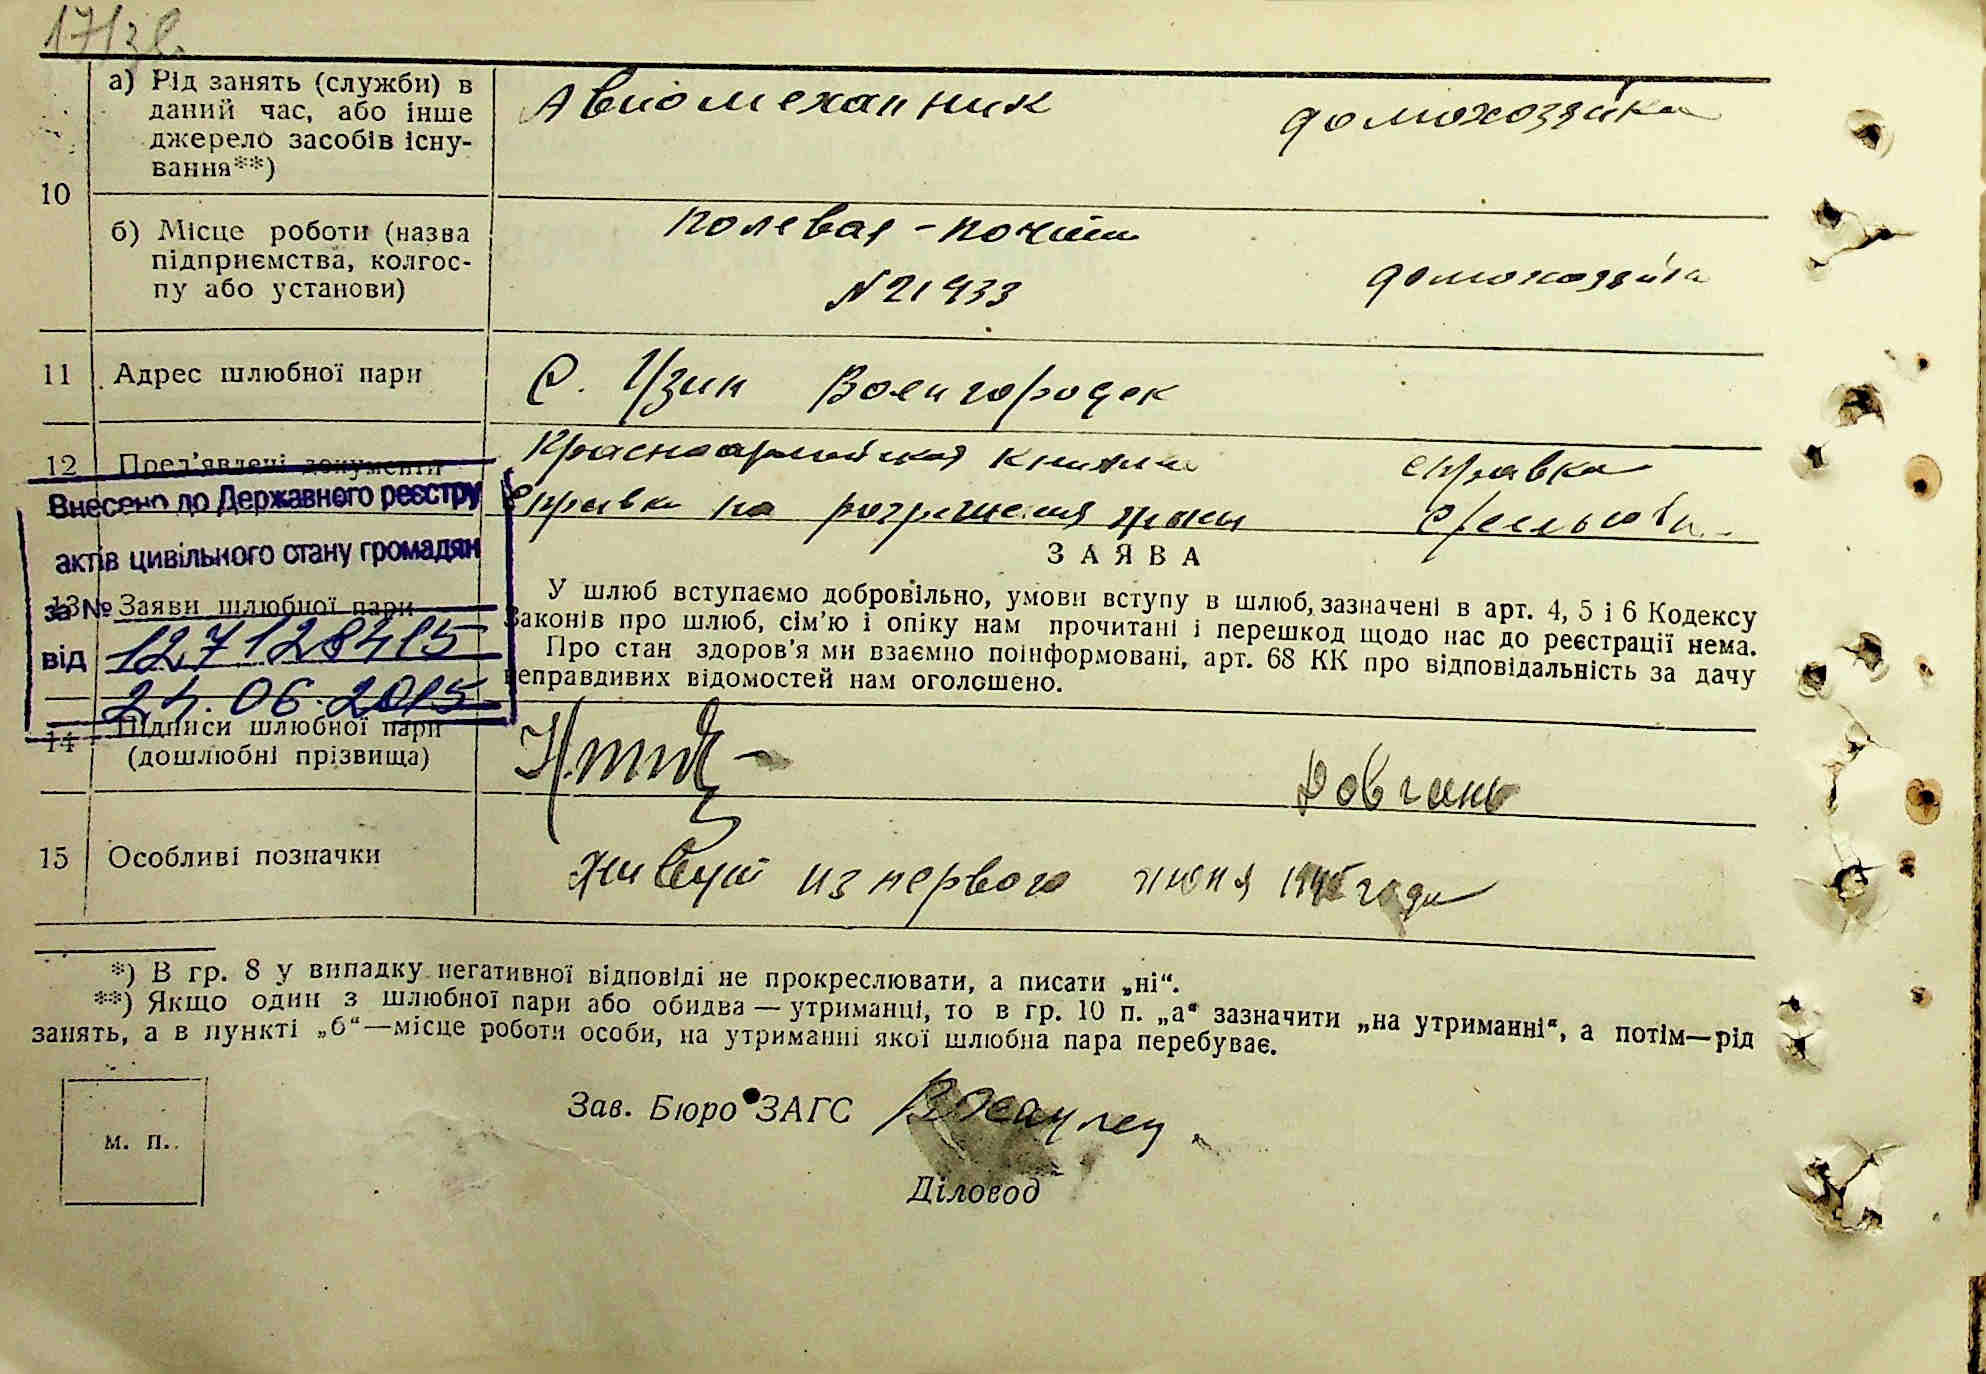 а) Рід занять (служби) в
даний час, або інше
джерело засобів існу-
вання**)
Авиомехапник
домохозяйка
10
б) Місце роботи (назва
підприємства, колгос-
пу або установи)
полевая - почта
№ 21933
домохозяйка
11 Адрес шлюбної пари
С. Узин Военгородек
12 Пред'явлені документи
Красноармейская книжка
справка
справка на
сельсовета
Внесено до Державного реєстру
актів цивільного стану громадян
за № 127128415
від 24.06.2015
ЗАЯВА
13 Заяви шлюбної пари
У шлюб вступаємо добровільно, умови вступу в шлюб, зазначені в арт. 4, 5 і 6 Кодексу
Законів про шлюб, сім'ю і опіку нам прочитані і перешкод щодо нас до реєстрації нема.
Про стан здоров'я ми взаємно поінформовані, арт. 68 КК про відповідальність за дачу
неправдивих відомостей нам оголошено.
14 Підписи шлюбної пари
(дошлюбні прізвища)
Довгань
15 Особливі позначки
живут из первого июня 1945 года
*) В гр. 8 у випадку негативної відповіді не прокреслювати, а писати „ні“.
**) Якщо один з шлюбної пари або обидва — утриманці, то в гр. 10 п. „а“ зазначити „на утриманні“, а потім—рід
занять, а в пункті „б“—місце роботи особи, на утриманні якої шлюбна пара перебуває.
Зав. Бюро ЗАГС
м. п.
Діловод